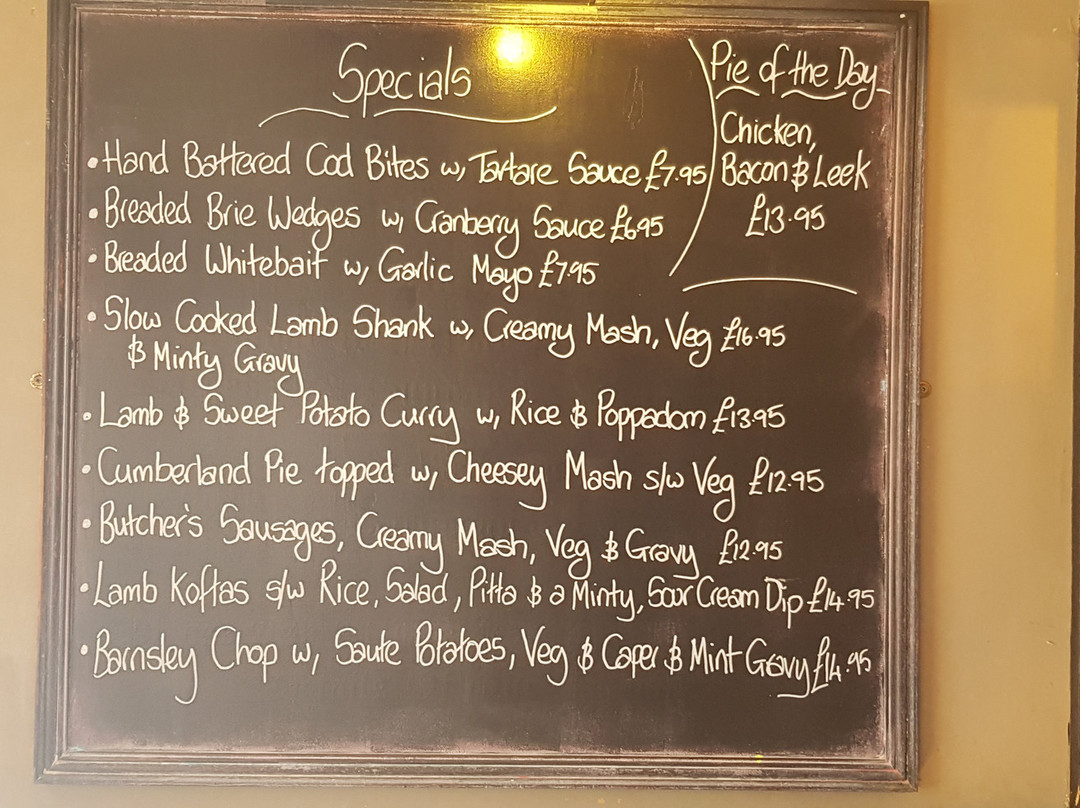 Specials
• Hand Battered Cod Bites w, Tartare Sauce £7.95
• Breaded Brie Wedges w, Cranberry Sauce £6.95
• Breaded Whitebait w, Garlic Mayo £7.95
• Slow Cooked Lamb Shank w, Creamy Mash, Veg £16.95
& Minty Gravy
• Lamb & Sweet Potato Curry w, Rice & Poppadom £13.95
• Cumberland Pie topped w, Cheesey Mash s/w Veg £12.95
• Butcher's Sausages, Creamy Mash, Veg & Gravy £12.95
• Lamb Koftas s/w Rice, Salad, Pitta & a Minty, Sour Cream Dip £14.95
• Barnsley Chop w, Saute Potatoes, Veg & Caper & Mint Gravy £14.95
Pie of the Day
Chicken,
Bacon & Leek
£13.95